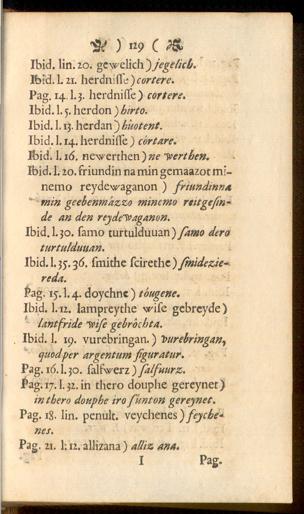 ) 129 (
Ibid. lin. 20. gewelich ) jegelich.
Ibid. l. 21. herdniſſe ) cortere.
Pag. 14. l. 3. herdniſſe ) cortere.
Ibid. l. 5. herdon ) hirto.
Ibid. l. 13. herdan ) huotent.
Ibid. l. 14. herdniſſe ) cortare.
Ibid. l. 16. newerthen ) ne werthen.
Ibid. l. 20. friundin na min gemaazot mi-
nemo reydewaganon ) friundinna
min geebenmazzo minemo reitgeſin-
de an den reydewaganon.
Ibid. l. 30. ſamo turtulduuan ) ſamo dero
turtulduuan.
Ibid. l. 35. 36. ſmithe ſcirethe ) ſmidezie-
reda.
Pag. 15. l. 4. doychne ) tougene.
Ibid. l. 12. lampreythe wiſe gebreyde )
lantfride wiſe gebrochta.
Ibid. l. 19. vurebringan. ) vurebringan,
quod per argentum figuratur.
Pag. 16. l. 30. ſalfwerz ) ſalfuurz.
Pag. 17. l. 32. in thero douphe gereynet )
in thero douphe iro ſunton gereynet.
Pag. 18. lin. penult. veychenes ) feyche-
nes.
Pag. 21. l. 12. allizana ) alliz ana.
I Pag.